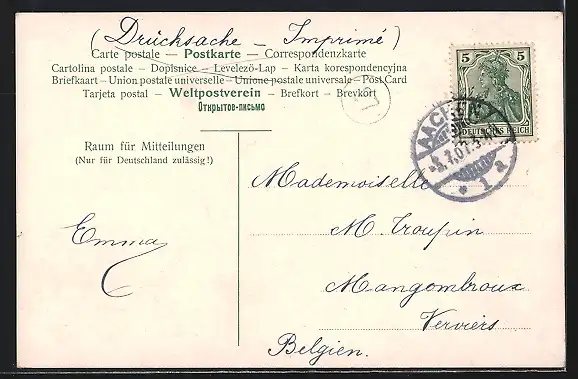 (Drücksache - Imprimé)
Carte postale — Postkarte — Correspondenzkarte
Cartolina postale — Dopisnice — Levelező-Lap — Karta korespondencyjna
Briefkaart — Union postale universelle — Unione postale universale — Post Card
Tarjeta postal — Weltpostverein — Brefkort — Brevkort
Открытое-письмо
5 5
DEUTSCHES REICH
AACHEN
1 a
Raum für Mitteilungen
(Nur für Deutschland zulässig!)
Emma
Mademoiselle
M. Troupin
Mangombroux
Verviers
Belgien.